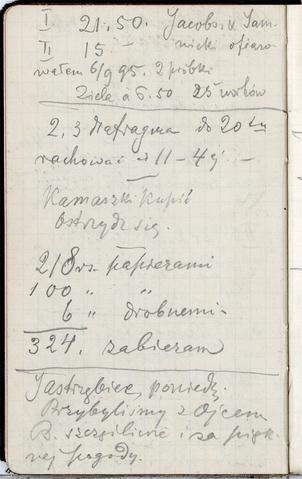 I. 21.50. Jacobs. & Sam-
II 15.– nicki ofiaro-
wałem 6/9 95. 2 próbki
Ziela à 6.50 25 worków
2, 3 do 20
rachować 11 – 4
Kamaszki kupić
Ostrzydz się.
218 rs. papierami
100 " "
6 " drobnemi
324. zabieram
Jastrzębiec, poniedz.
Przybyliśmy z Ojcem
B. szczęśliwie i za pięk-
nej pogody.